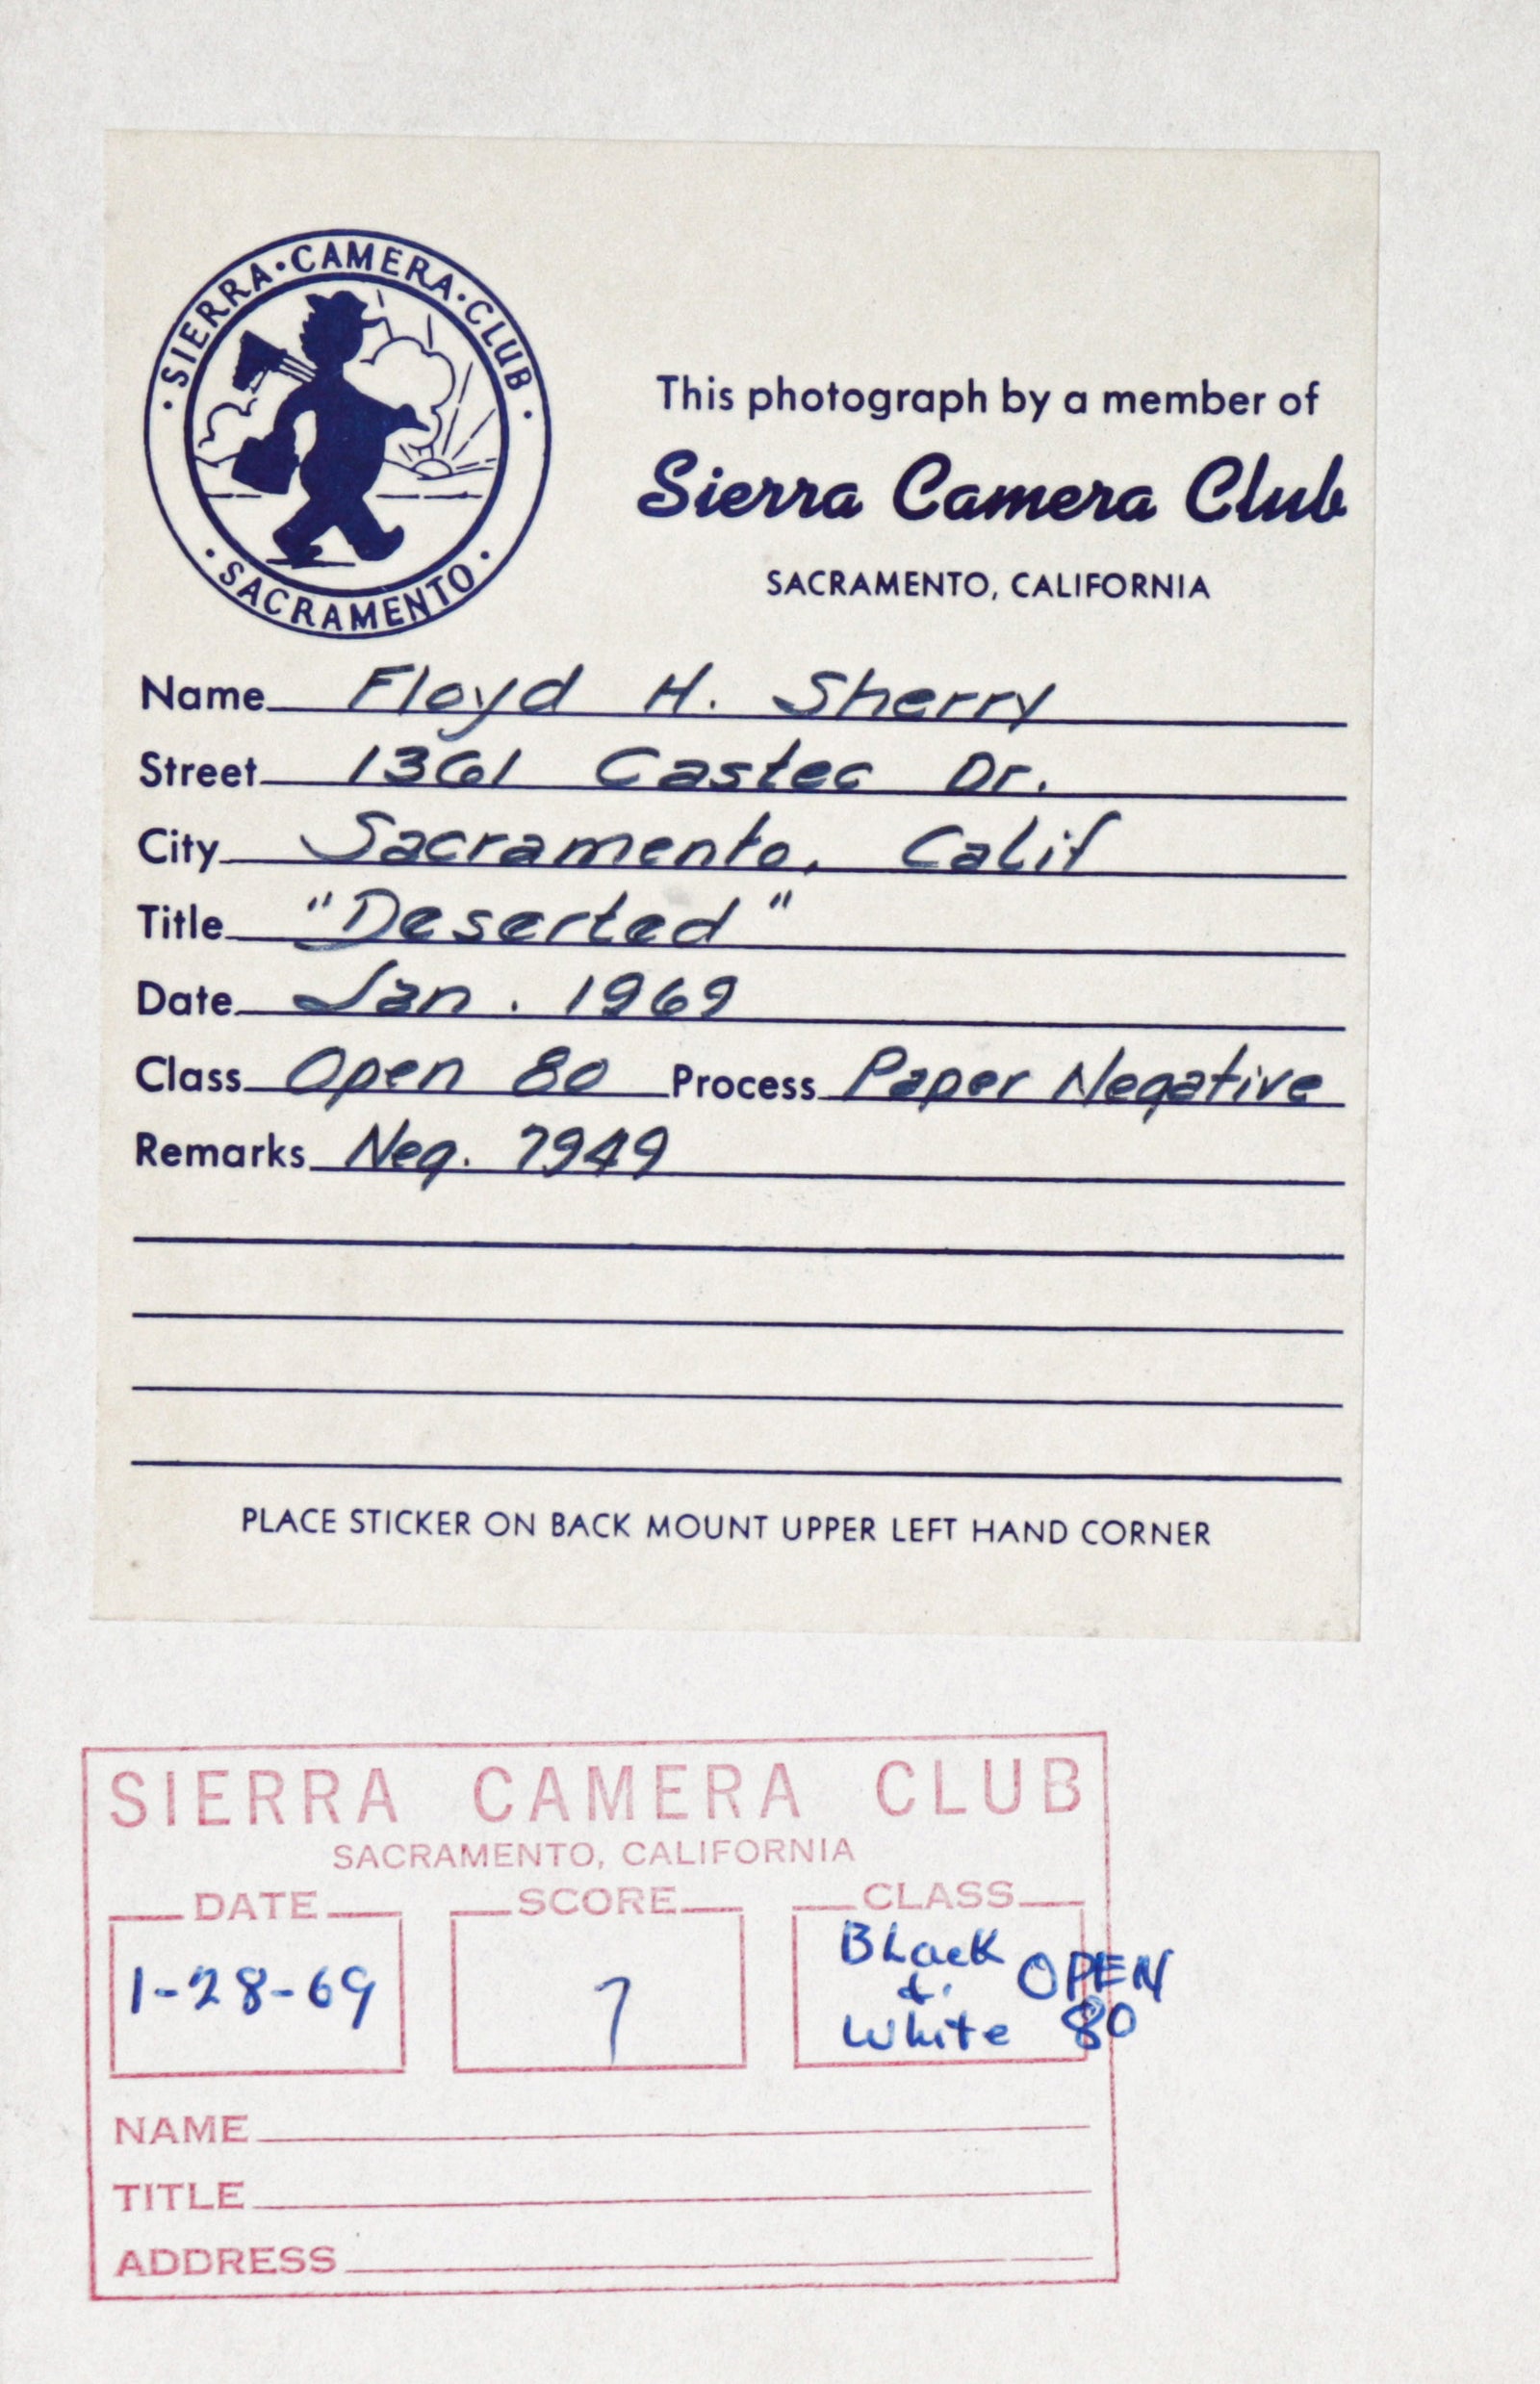 · SIERRA · CAMERA · CLUB ·
· SACRAMENTO ·
This photograph by a member of
Sierra Camera Club
SACRAMENTO, CALIFORNIA
Name Floyd H. Sherry
Street 1361 Castec Dr.
City Sacramento, Calif
Title "Deserted"
Date Jan. 1969
Class Open 80 Process Paper Negative
Remarks Neg. 7949
PLACE STICKER ON BACK MOUNT UPPER LEFT HAND CORNER
SIERRA CAMERA CLUB
SACRAMENTO, CALIFORNIA
DATE SCORE CLASS
1-28-69 7 Black & White OPEN 80
NAME
TITLE
ADDRESS